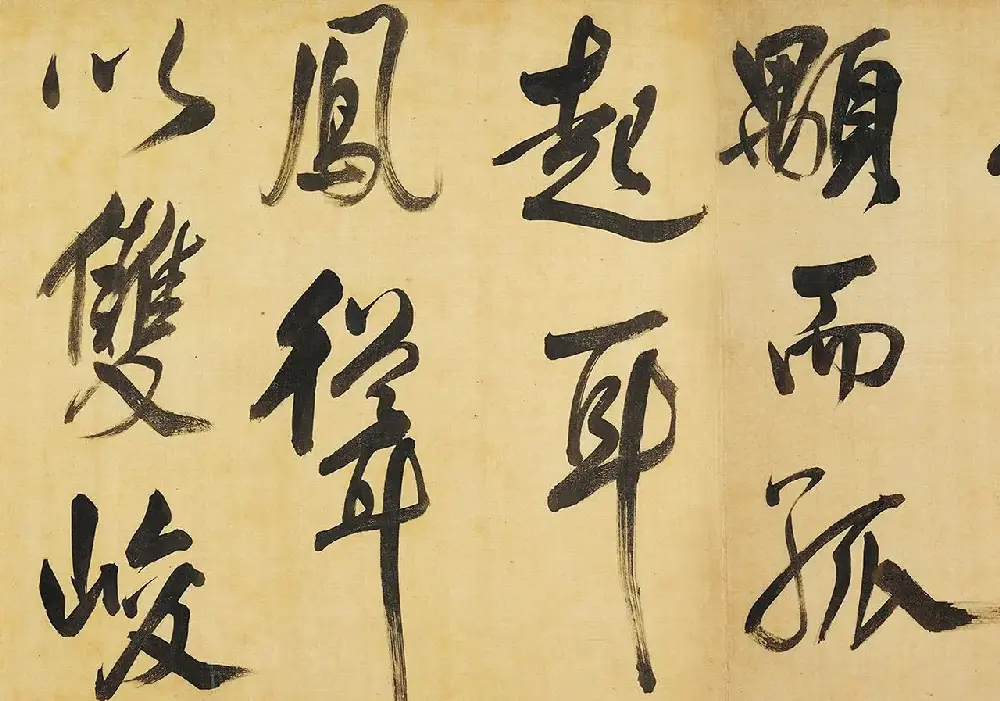 顯而孤
起耳
鳳聳
以雙峻